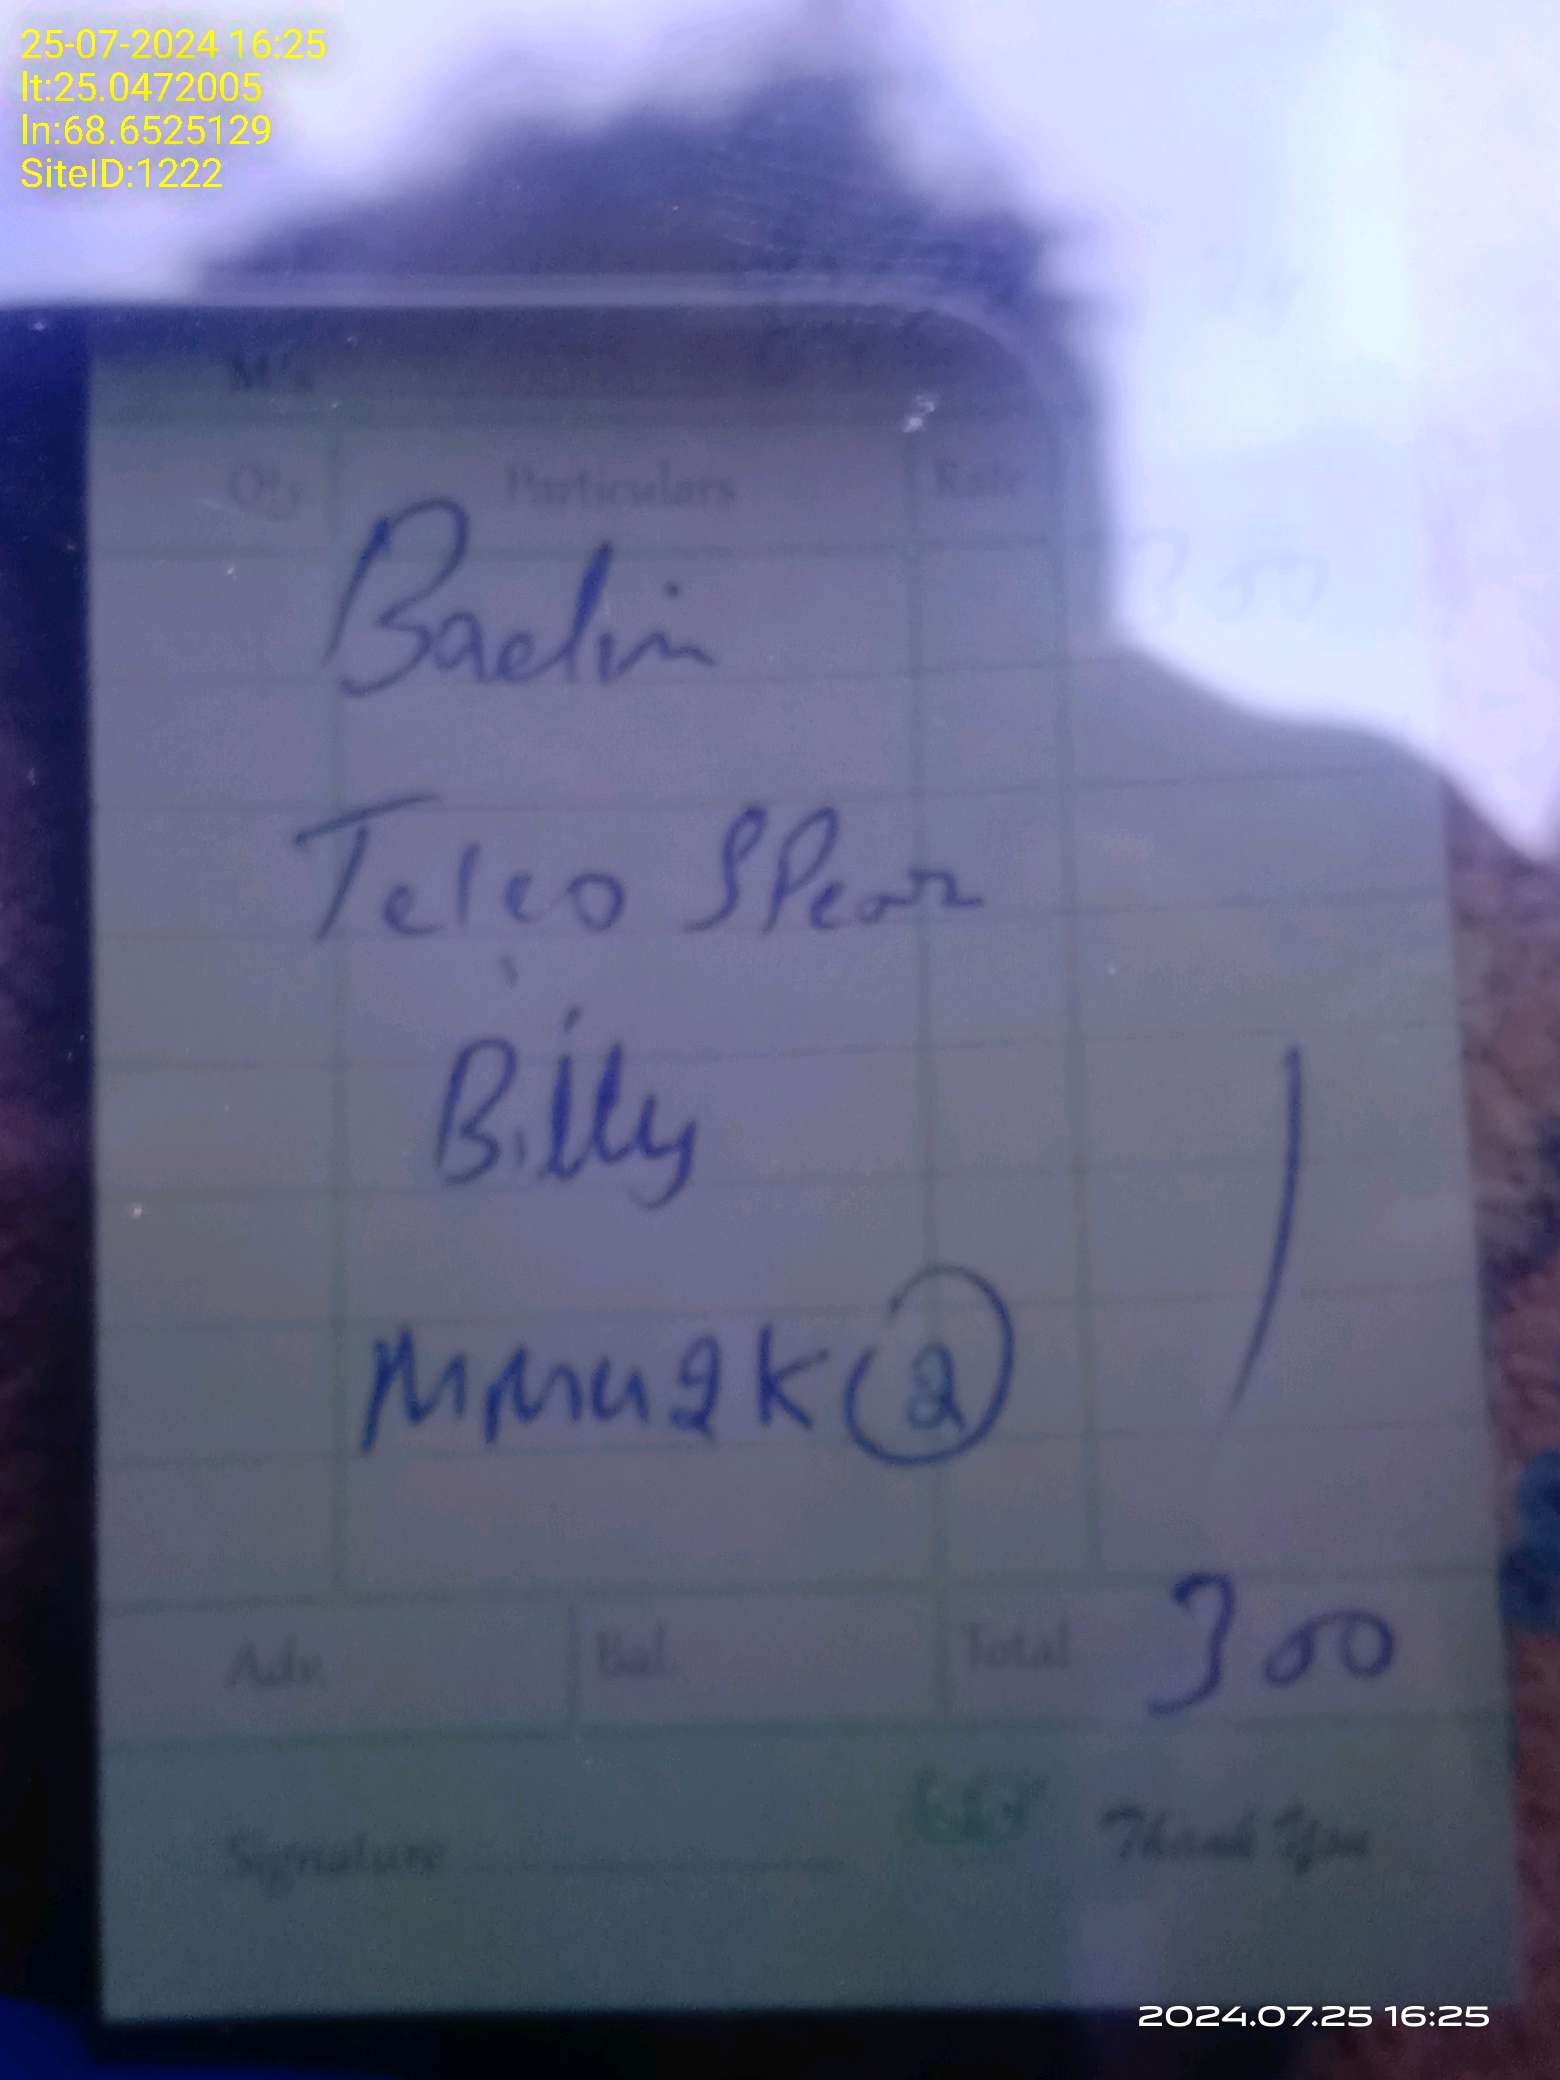 25-07-2024 16:25
lt:25.0472005
ln:68.6525129
SiteID:1222
M/s
Qty Particulars Rate
Badin
Teleo SPear
Billy
2 K (2)
Adv. Bal. Total 300
Signature Thank You
2024.07.25 16:25